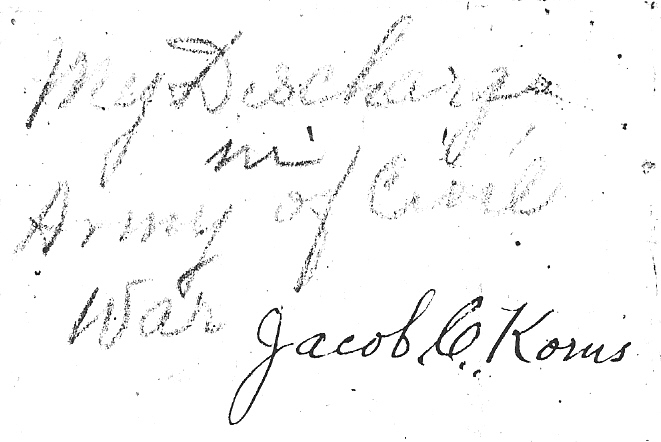 My Discharge
in
Army of Civil
War
Jacob C. Korns